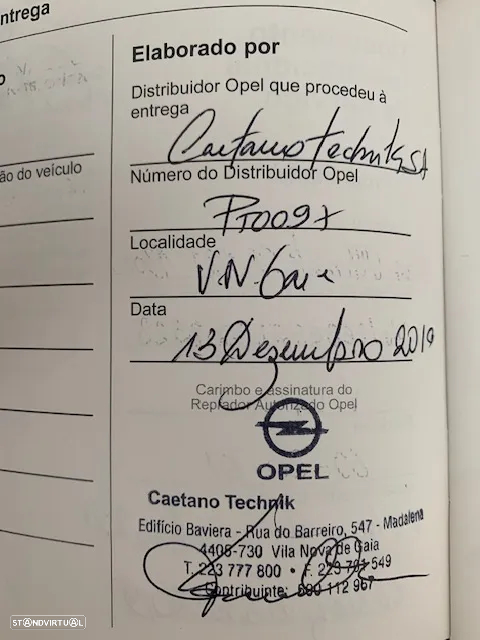 ntrega
Elaborado por
Distribuidor Opel que procedeu à
entrega
Caetano Technik, SA
ão do veículo
Número do Distribuidor Opel
PT0097
Localidade
V.N. Gaia
Data
13 Dezembro 2019
Carimbo e assinatura do
Reprador Autorizado Opel
OPEL
Caetano Technik
Edifício Baviera - Rua do Barreiro, 547 - Madalena
4405-730 Vila Nova de Gaia
T. 223 777 800 • F. 223 791 549
Contribuinte: 500 112 967
STANDVIRTUAL